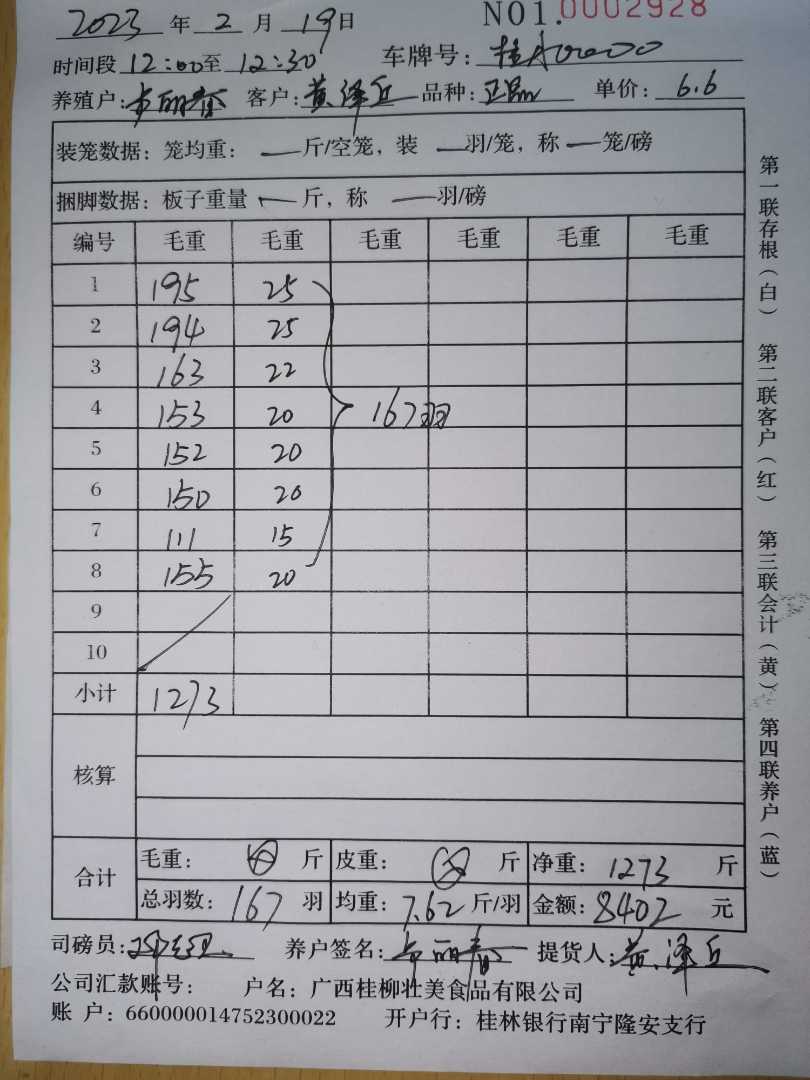 NO1.0002928
2023 年 2 月 19 日
时间段 12:00 至 12:30 车牌号: 桂A00000
养殖户: 丽春 客户: 黄泽丘 品种: 单价: 6.6
装笼数据: 笼均重: — 斤/空笼, 装 — 羽/笼, 称 — 笼/磅
捆脚数据: 板子重量 — 斤, 称 — 羽/磅
编号 毛重 毛重 毛重 毛重 毛重 毛重
1 195 25
2 194 25
3 163 22
4 153 20 167羽
5 152 20
6 150 20
7 111 15
8 155 20
9
10
小计 1273
核算
合计 毛重: 斤 皮重: 斤 净重: 1273 斤
总羽数: 167 羽 均重: 7.62 斤/羽 金额: 8402 元
司磅员: 养户签名: 丽春 提货人: 黄泽丘
公司汇款账号: 户名: 广西桂柳壮美食品有限公司
账 户: 660000014752300022 开户行: 桂林银行南宁隆安支行
第一联存根(白) 第二联客户(红) 第三联会计(黄) 第四联养户(蓝)